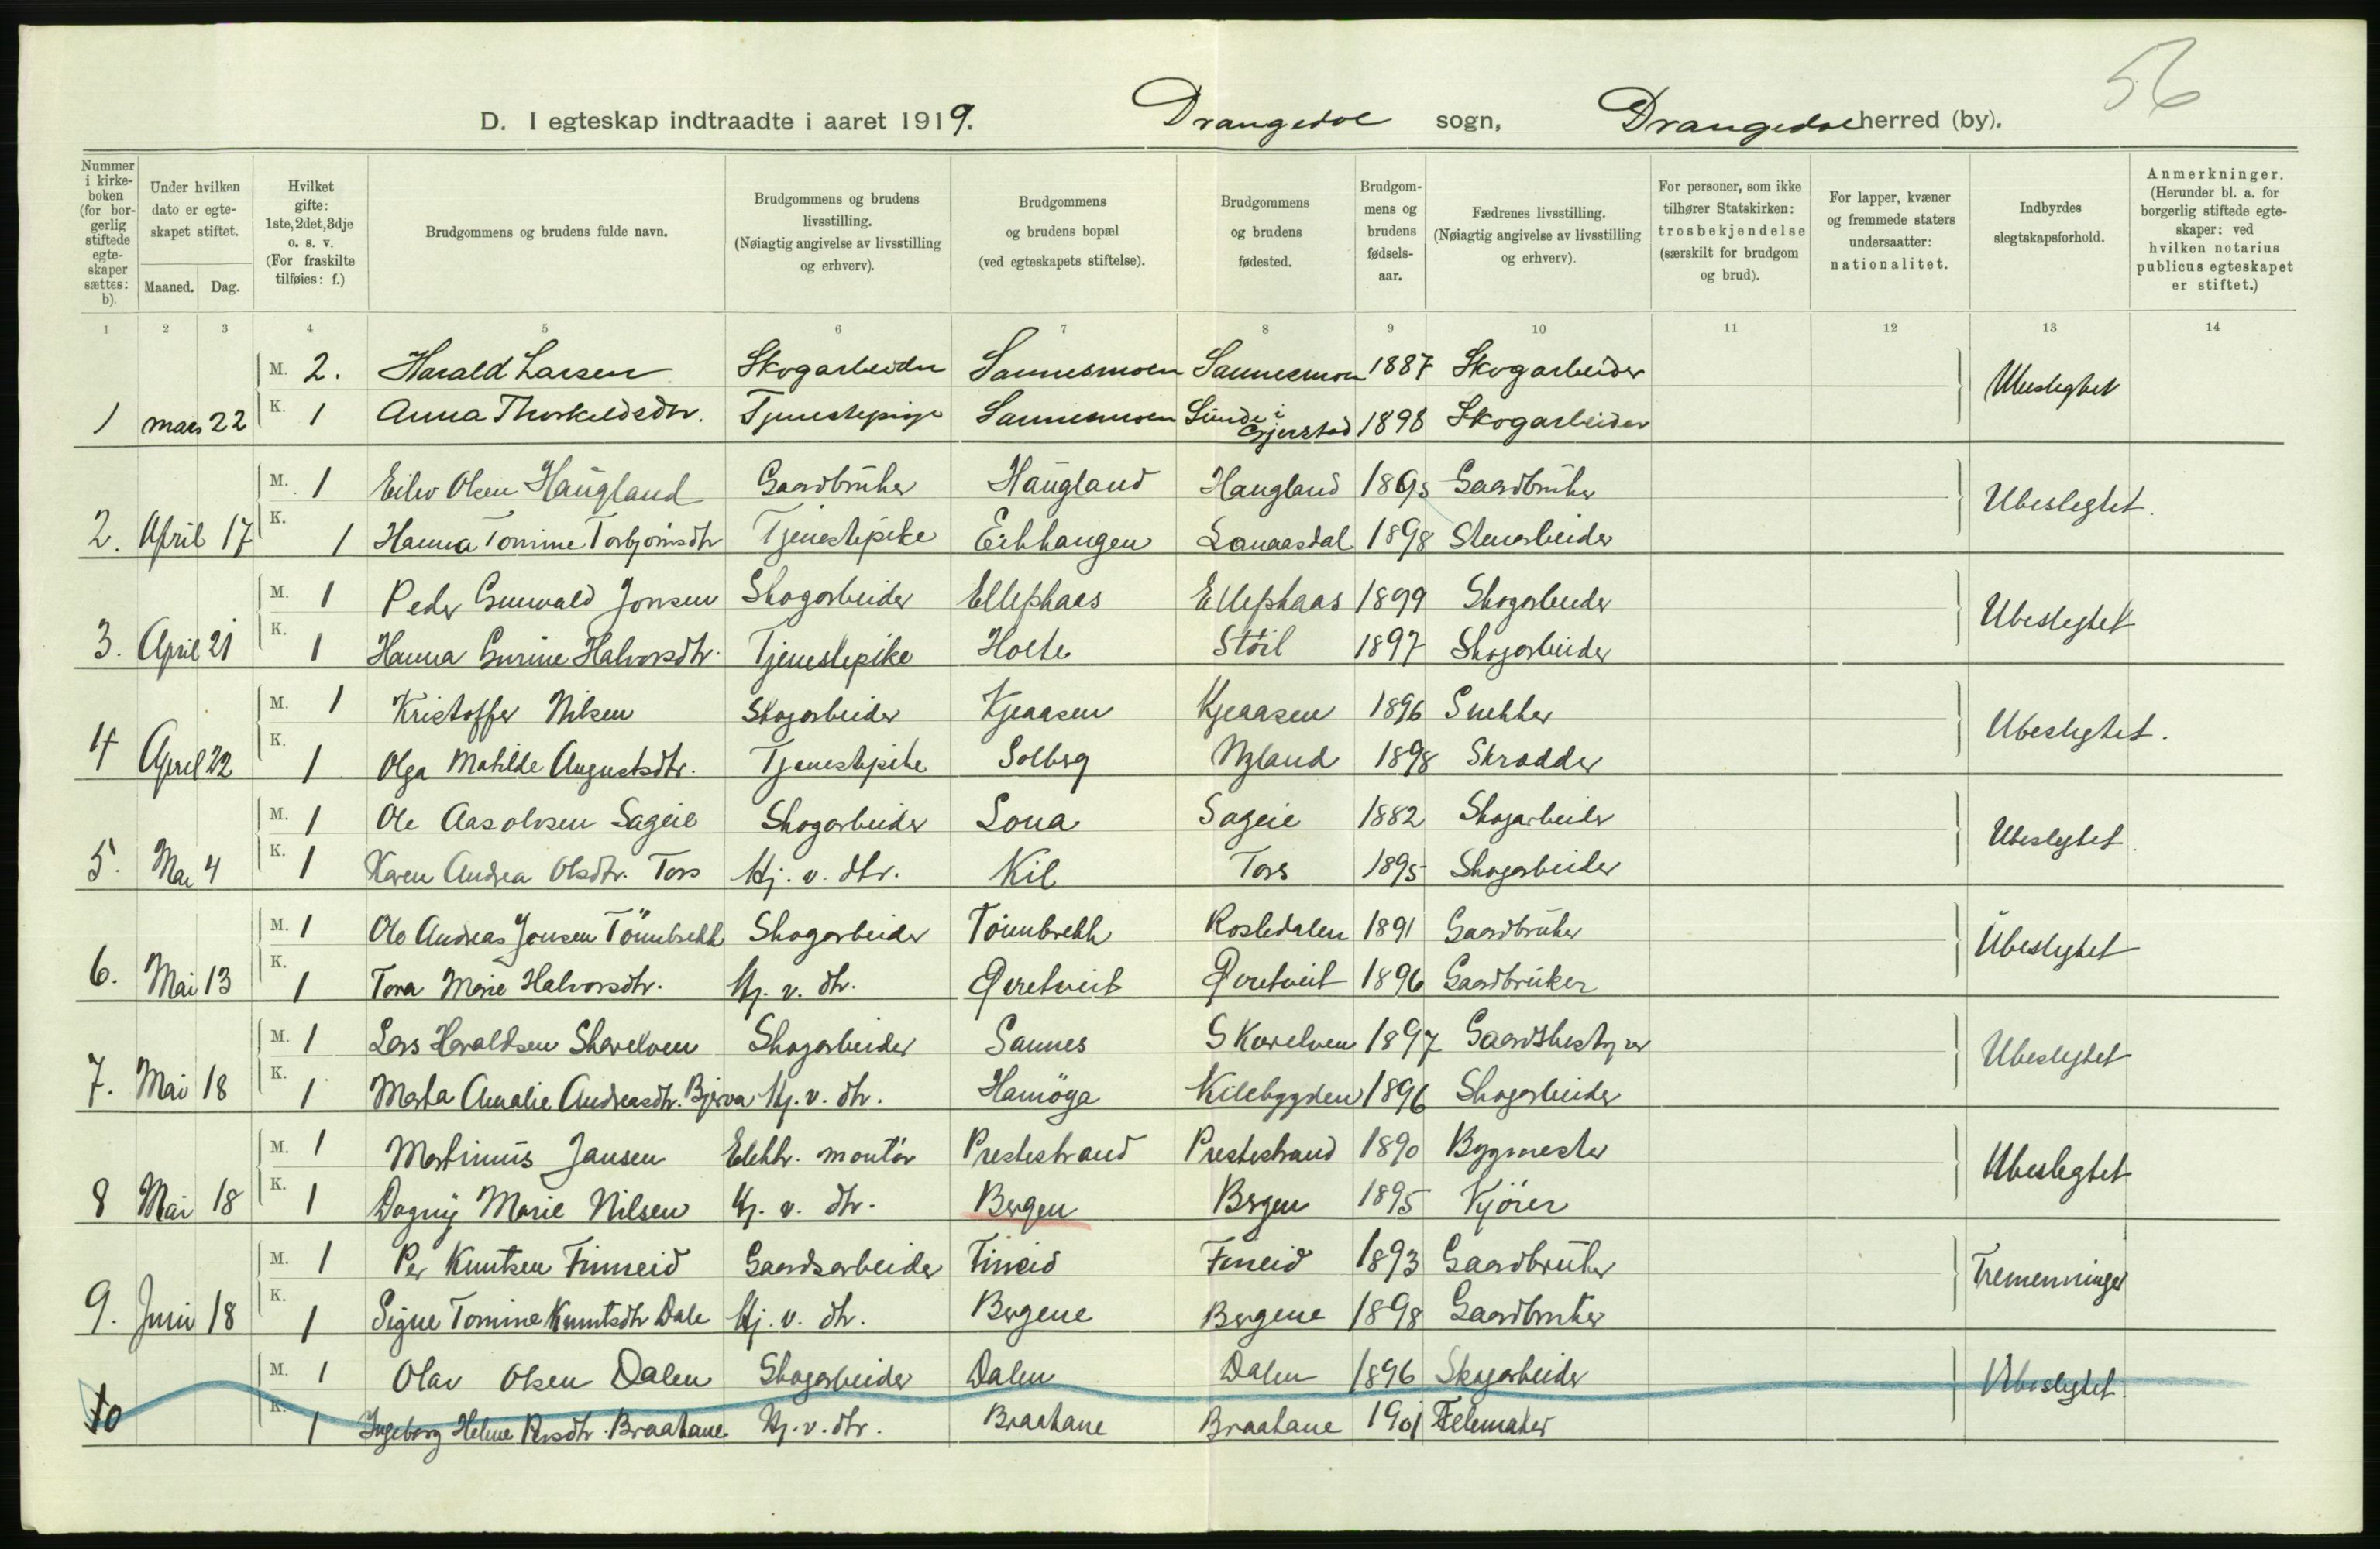 56
D. I egteskap indtraadte i aaret 1919. Drangedal sogn, Drangedal herred (by).
Nummer i kirke-boken (for bor-gerlig stiftede egte-skaper sættes: b).
Under hvilken dato er egte-skapet stiftet.
Maaned. Dag.
Hvilket gifte: 1ste, 2det, 3dje o. s. v. (For fraskilte tilføies: f.)
Brudgommens og brudens fulde navn.
Brudgommens og brudens livsstilling. (Nøiagtig angivelse av livsstilling og erhverv).
Brudgommens og brudens bopæl (ved egteskapets stiftelse).
Brudgommens og brudens fødested.
Brudgom-mens og brudens fødsels-aar.
Fædrenes livsstilling. (Nøiagtig angivelse av livsstilling og erhverv).
For personer, som ikke tilhører Statskirken: trosbekjendelse (særskilt for brudgom og brud).
For lapper, kvæner og fremmede staters undersaatter: nationalitet.
Indbyrdes slegtskapsforhold.
Anmerkninger. (Herunder bl. a. for borgerlig stiftede egte-skaper: ved hvilken notarius publicus egteskapet er stiftet.)
1 2 3 4 5 6 7 8 9 10 11 12 13 14
M. 2. Harald Larsen Skogarbeider Sannesmoen Sannesmoen 1887 Skogarbeider Ubeslegtet
1 mars 22 K. 1 Anna Thorkildsdtr. Tjenestepige Sannesmoen Sunde i Gjerstad 1898 Skogarbeider
M. 1 Eilev Olsen Haugland Gaardbruker Haugland Haugland 1895 Gaardbruker Ubeslegtet.
2. April 17 K. 1 Hanna Tomine Torbjørnsdtr Tjenestepike Eikhaugen Lonaasdal 1898 Stenarbeider
M. 1 Peder Gunvald Jonsen Skogarbeider Ellephaas Ellephaas 1899 Skogarbeider Ubeslegtet
3. April 21 K. 1 Hanna Gurine Halvorsdtr. Tjenestepike Holte Støil 1897 Skogarbeider
M. 1 Kristoffer Nilsen Skogarbeider Kjeaasen Kjeaasen 1896 Snekker Ubeslegtet.
4 April 22 K. 1 Olga Matilde Augustsdtr. Tjenestepike Solberg Nyland 1898 Skrædder
M. 1 Ole Aasolvsen Sageie Skogarbeider Lona Sageie 1882 Skogarbeider Ubeslegtet.
5. Mai 4 K. 1 Karen Andrea Olsdtr. Tors Hj. v. dtr. Kil Tors 1895 Skogarbeider
M. 1 Ole Andreas Jonsen Tömbrekk Skogarbeider Tömbrekk Rosledalen 1891 Gaardbruker Ubeslegtet
6. Mai 13 K. 1 Tora Marie Halvorsdtr. Hj. v. dtr. 1896 Gaardbruker
M. 1 Lars Haraldsen Skarelven Skogarbeider Sannes Skarelven 1897 Gaardsbestyrer Ubeslegtet
7. Mai 18 K. 1 Marta Amalie Andreasdtr. Bjerva Hj. v. dtr. Hamöya Kilebygden 1896 Skogarbeider
M. 1 Martinius Jansen Elektr. montör Prestestrand Prestestrand 1890 Bygmester Ubeslegtet
8 Mai 18 K. 1 Dagny Marie Nilsen Hj. v. dtr. Bergen Bergen 1895 Kjörer
M. 1 Per Knutsen Finneid Gaardsarbeider Fineid Fineid 1893 Gaardbruker Tremenninger
9. Juni 18 K. 1 Signe Tomine Knutsdtr Dale Hj. v. dtr. Bergene Bergene 1898 Gaardbruker
M. 1 Olav Olsen Dalen Skogarbeider Dalen Dalen 1896 Skogarbeider Ubeslegtet.
10 K. 1 Ingeborg Helene Persdtr. Braatane Hj. v. dtr. Braatane Braatane 1901 Felemaker